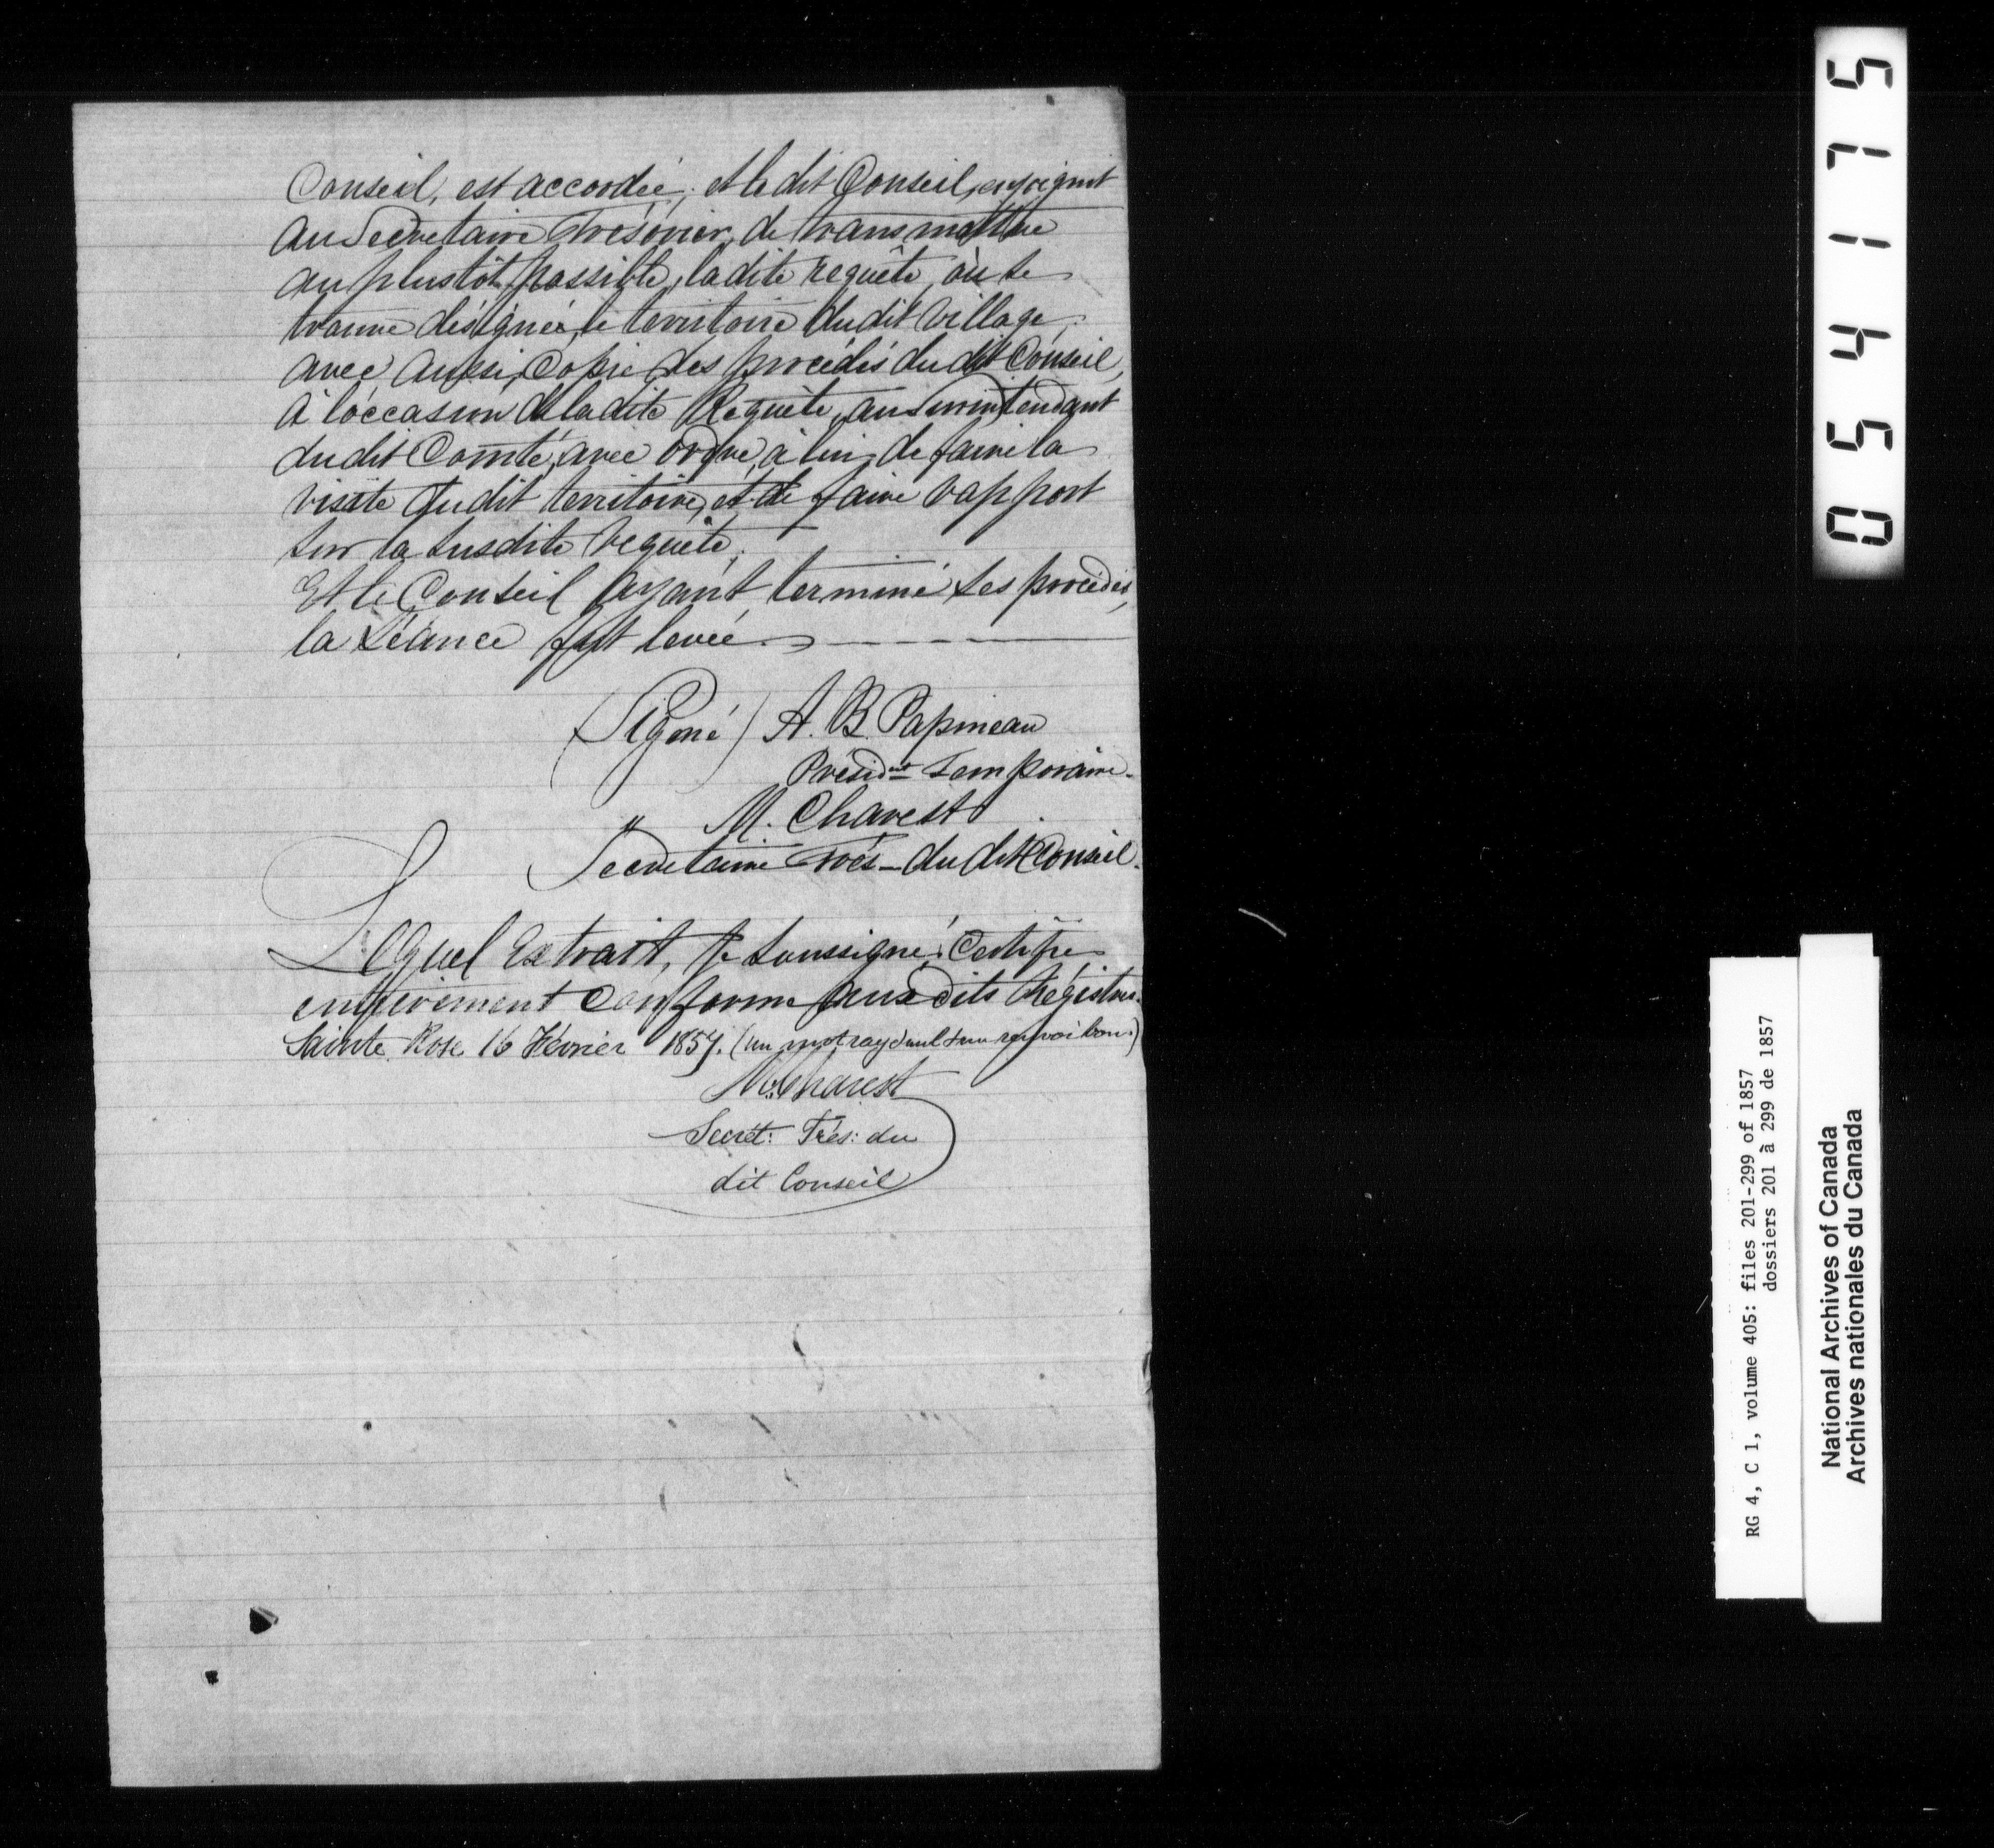 Conseil, est accordée; et le dit Conseil, enjoignit
au Secretaire Trésorier, de transmettre
au plustôt possible, ladite requête, où se
trouve désignée, le territoire dudit Village,
avec aussi, Copie des procédés du dit Conseil,
à l'occasion de ladite Requête, au Surintendant
dudit Comté, avec ordre, à lui, de faire la
visite dudit territoire, et de faire rapport
sur la susdite requête,
Et le Conseil ayant terminé ses procédés,
la Séance fut levée
(Signé) A. B. Papineau
Présid.nt Temporaire.
" M. Charest
Secretaire Trés- du dit Conseil.
Lequel Extrait, Je soussigné, Certifie
entièrement Conforme aux dits Régistres.
Sainte Rose 16 Février 1857. (un mot rayé nul & un renvoi bon.)
M. Charest
Secrét: Trés: du
dit Conseil
054175
RG 4, C 1, volume 405: files 201-299 of 1857
dossiers 201 à 299 de 1857
National Archives of Canada
Archives nationales du Canada